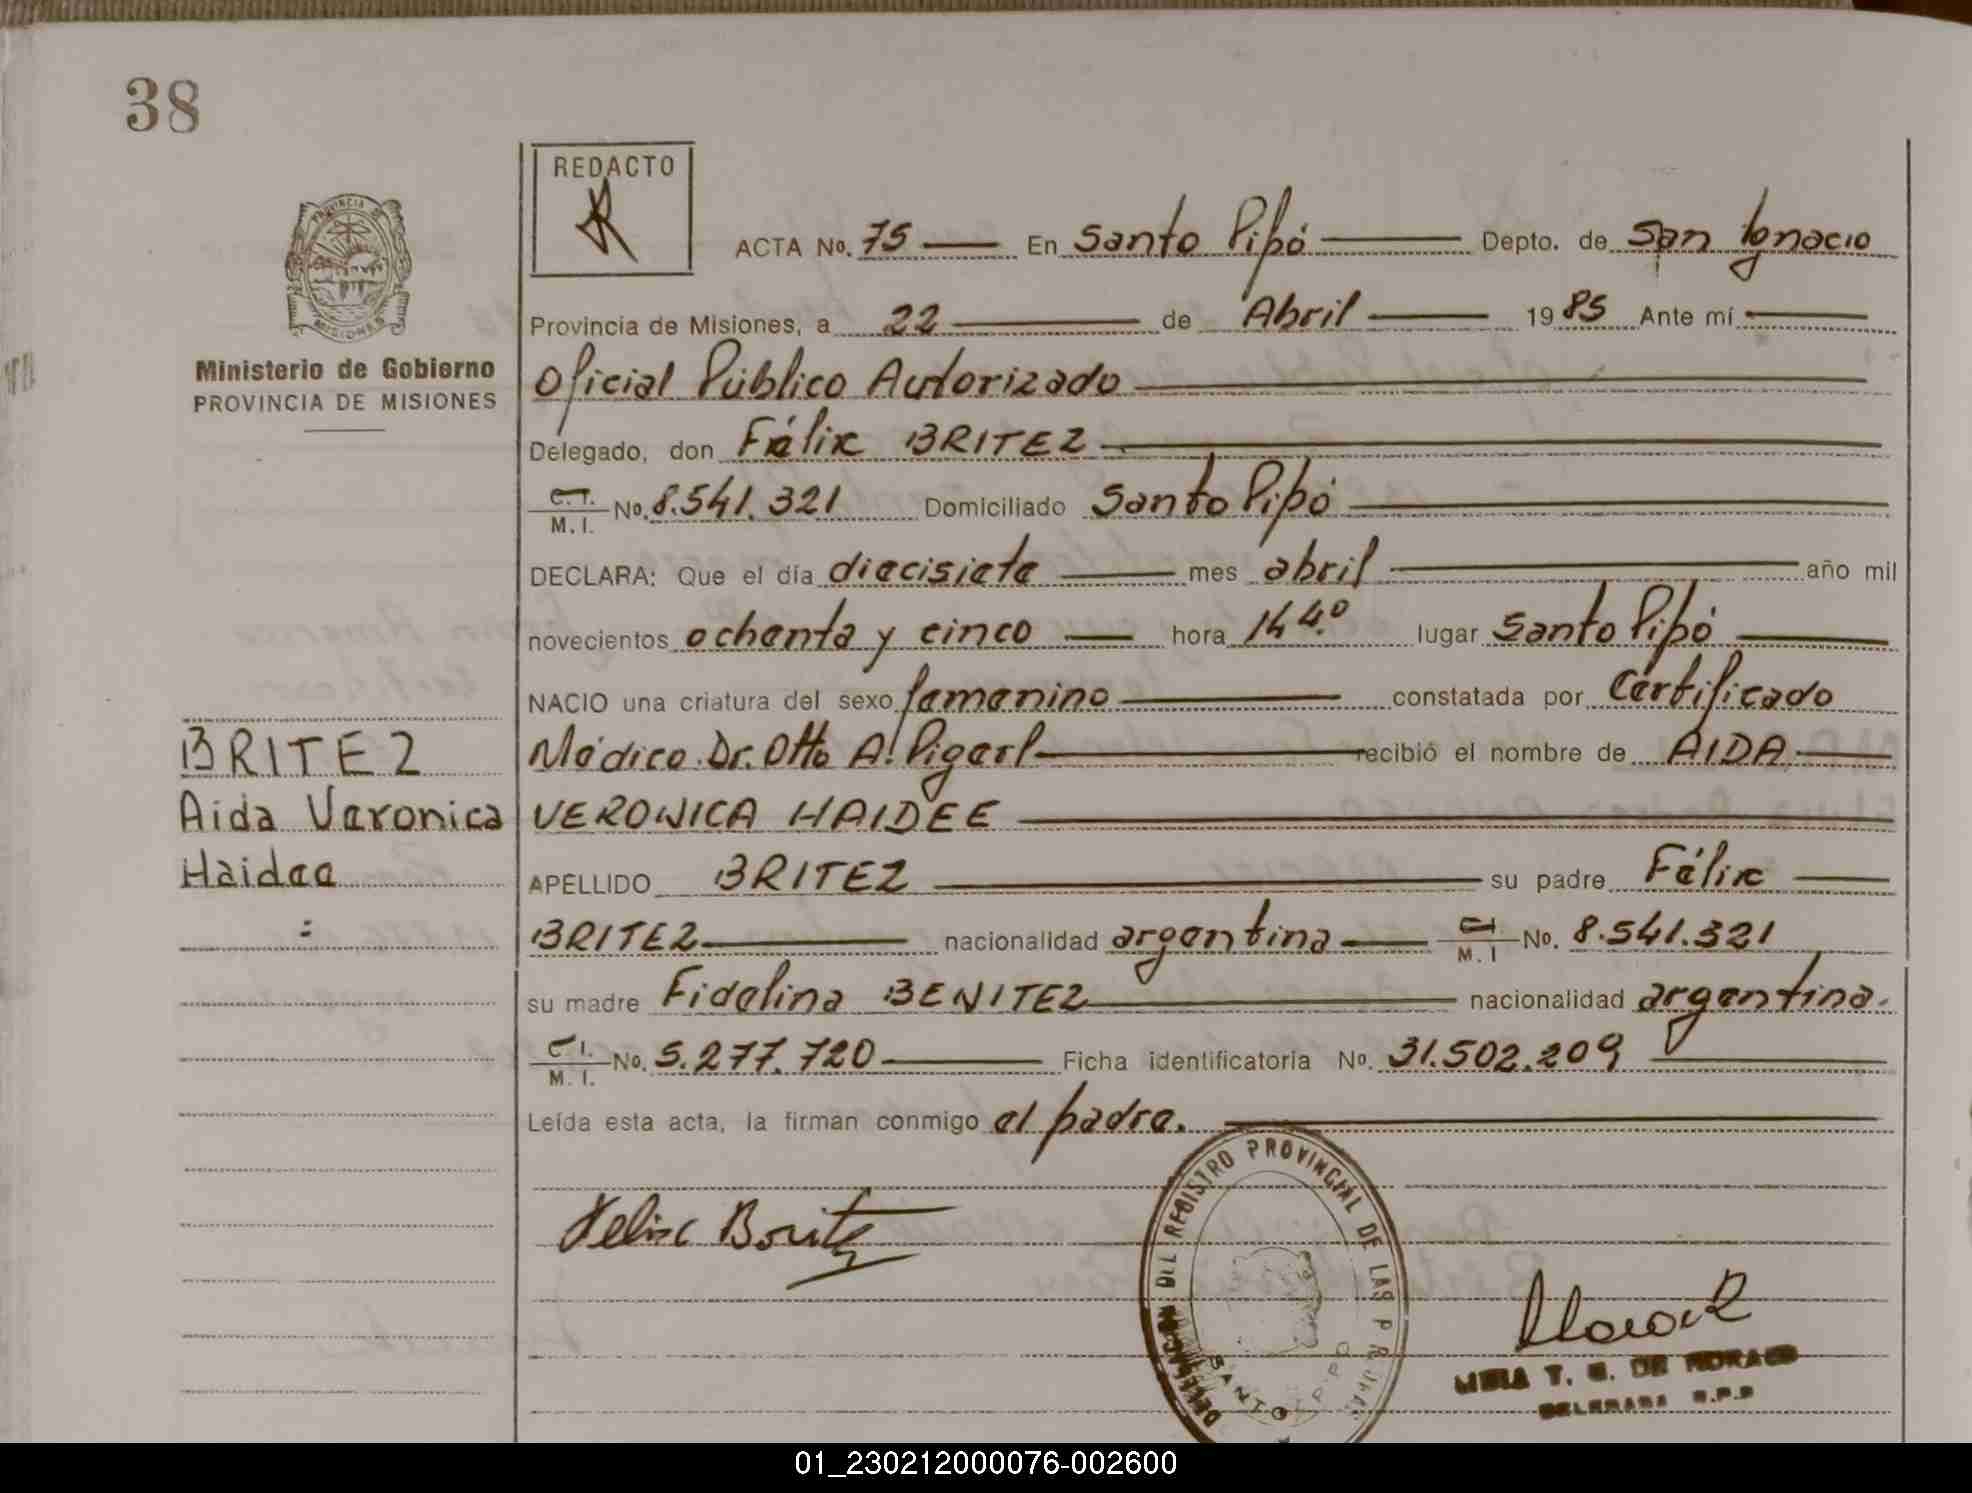 38
REDACTO
PROVINCIA DE
MISIONES
Ministerio de Gobierno
PROVINCIA DE MISIONES
ACTA No. 75 En Santo Pipó Depto. de San Ignacio
Provincia de Misiones, a 22 de Abril 1985 Ante mí
Oficial Público Autorizado
Delegado, don Félix BRITEZ
C.I. M. I. No. 8.541.321 Domiciliado Santo Pipó
DECLARA: Que el día diecisiete mes abril año mil
novecientos ochenta y cinco hora lugar Santo Pipó
NACIO una criatura del sexo femenino constatada por Certificado
Médico Dr. Otto A. recibió el nombre de AIDA
VERONICA HAIDEE
APELLIDO BRITEZ su padre Félix
BRITEZ nacionalidad argentina C.I. M. I No. 8.541.321
su madre Fidelina BENITEZ nacionalidad argentina.
C.I. M. I. No. 5.277.720 Ficha identificatoria No. 31.502.209
Leída esta acta, la firman conmigo el padre.
BRITEZ
Aida Veronica
Haidee
Felix Britez
DELEGACION DEL REGISTRO PROVINCIAL DE LAS PERSONAS
SANTO PIPO
T. DE MORAES
DELEGADA R.P.P
01_230212000076-002600